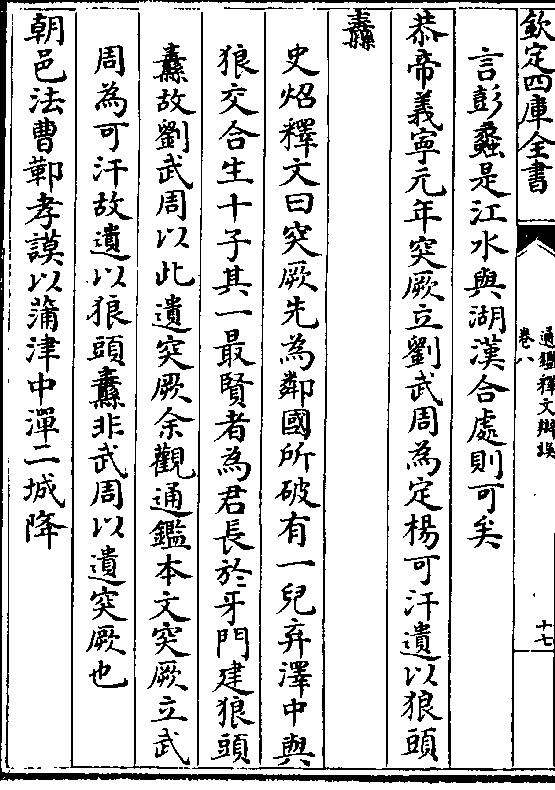 欽定四庫全書
通鑑釋文辯誤
卷八
十七
言彭蠡是江水與湖漢合處則可矣
恭帝義寧元年突厥立劉武周為定楊可汗遺以狼頭
纛
史炤釋文曰突厥先為鄰國所破有一兒弃澤中與
狼交合生十子其一最賢者為君長於牙門建狼頭
纛故劉武周以此遺突厥余觀通鑑本文突厥立武
周為可汗故遺以狼頭纛非武周以遺突厥也
朝邑法曹鄿孝謨以蒲津中潬二城降